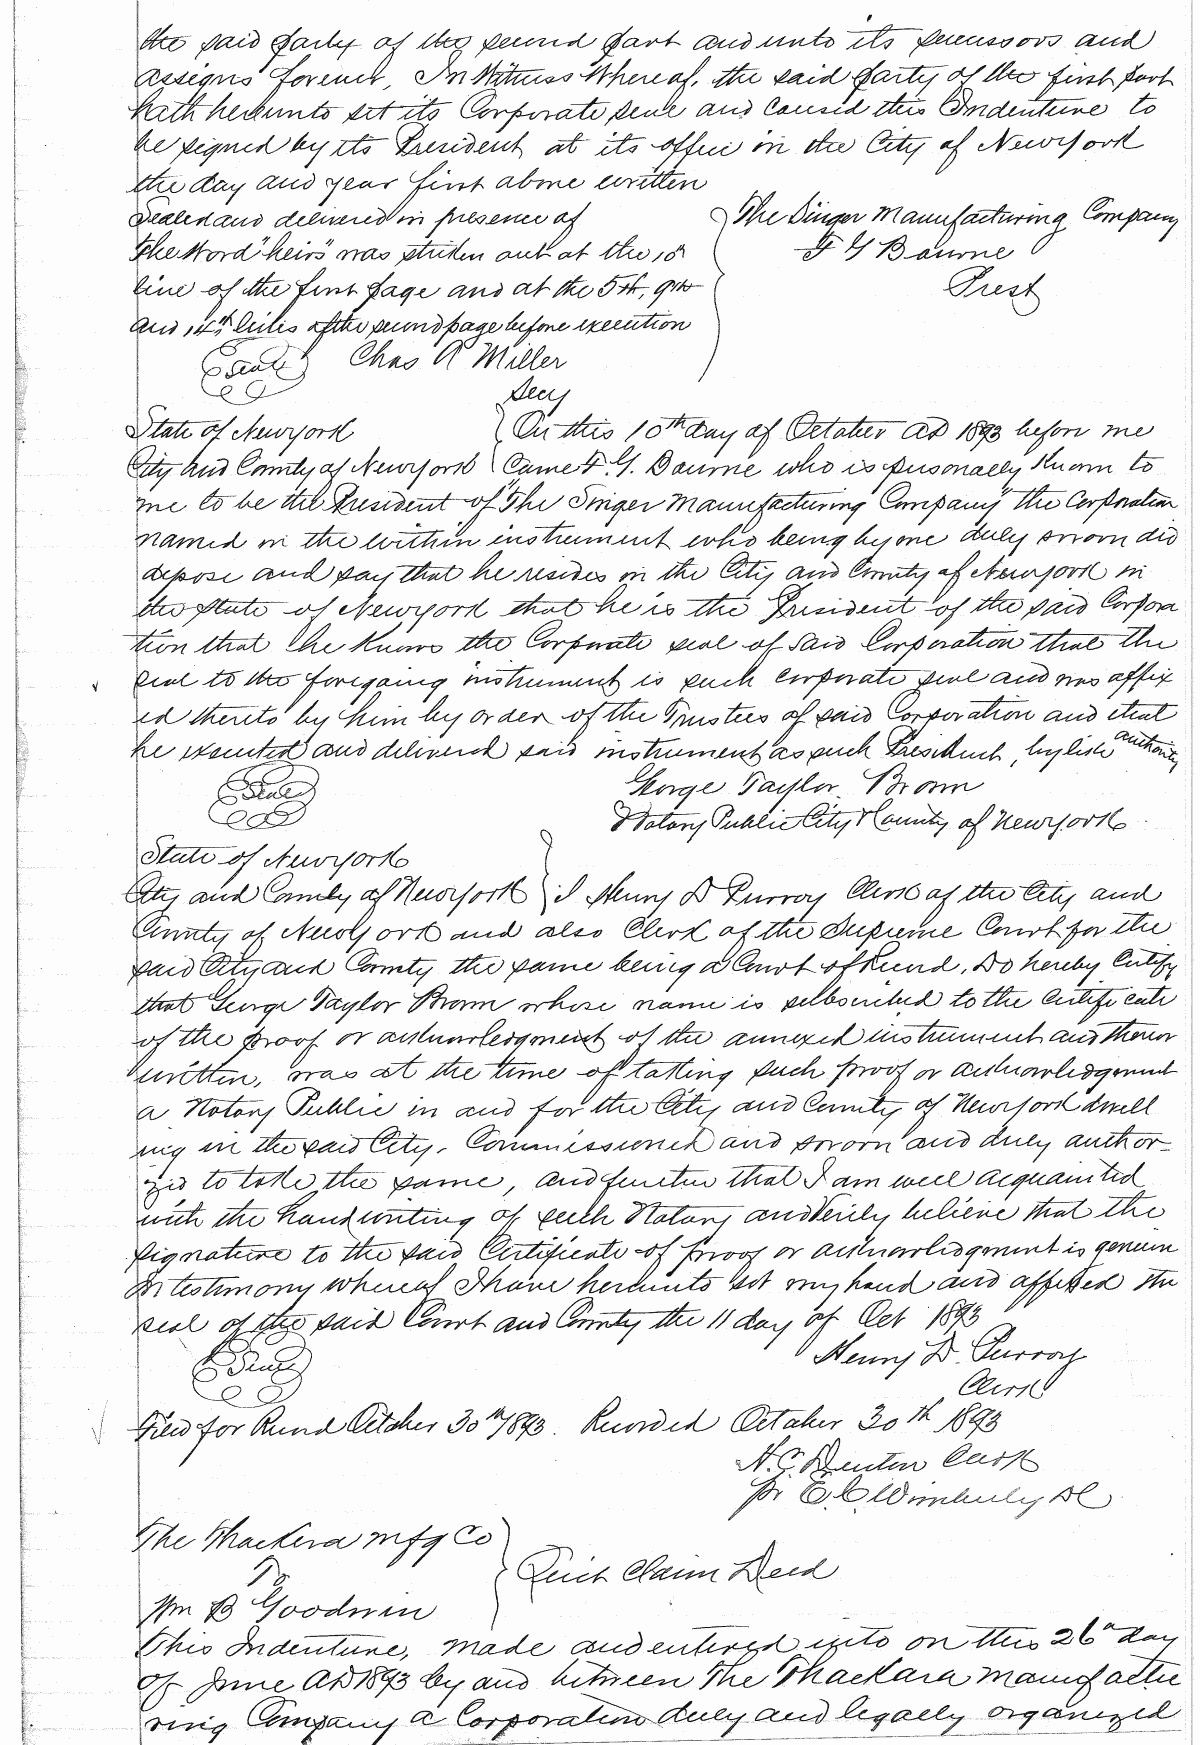 the said party of the second part and unto its successors and
assigns forever, In Witness Whereof, the said party of the first part
hath hereunto set its Corporate seal and caused this Indenture to
be signed by its President at its office in the City of New york
the day and year first above written
Sealed and delivered in presence of
The Word "heirs" was striken out at the 18
line of the first page and at the 5th, 9th
and 14th lines of the second page before execution
The Singer Manufacturing Company
F G Bourne
Prest
Seal Chas A Miller
Secy
State of New york
City and County of New york
On this 10th day of October AD 1893 before me
Came F. G. Bourne who is personally known to
me to be the President of "The Singer Manufacturing Company" the Corporation
named in the within instrument who being by me duly sworn did
depose and say that he resides in the City and County of New york in
the State of New york that he is the President of the said Corpora
tion that he knows the Corporate seal of said Corporation that the
seal to the foregoing instrument is such corporate seal and was affix
ed thereto by him by order of the Trustees of said Corporation and that
he executed and delivered said instrument as such President, by like authority
Seal
George Taylor Brown
Notary Public City & County of New york
State of New york
City and County of New york } I Henry D Purroy Clerk of the City and
County of New York and also Clerk of the Supreme Court for the
said City and County the same being a Court of Record. Do hereby Certify
that George Taylor Brown whose name is subscribed to the Certificate
of the proof or acknowledgment of the annexed instrument and thereon
written, was at the time of taking such proof or acknowledgment
a Notary Public in and for the City and County of New york dwell
ing in the said City, Commissioned and sworn and duly author-
zed to take the same, and further that I am well acquainted
with the handwriting of such Notary and Verily believe that the
signature to the said Certificate of proof or acknowledgment is genuin
In testimony whereof I have hereunto set my hand and affixed the
seal of the said Court and County the 11 day of Oct 1893
Seal
Henry D. Purroy
Clerk
Filed for Record October 30th 1893. Recorded October 30th 1893
N. C. Denton Clerk
pr E. C. Wimberly DC
The Thackera Mfg Co
To
Wm B Goodwin
Quit Claim Deed
This Indenture, made and entered into on this 26th day
of June AD 1893 by and between The Thackara Manufactu
ring Company a Corporation duly and legally organized